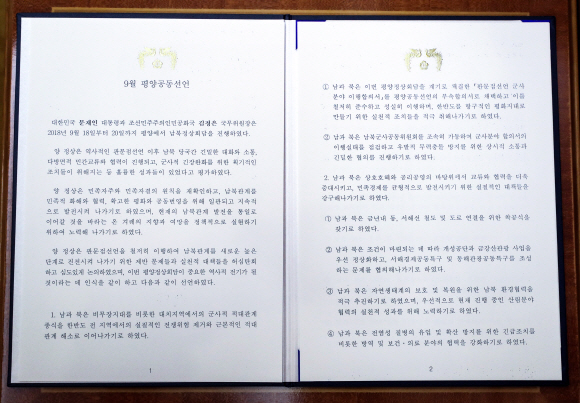 9월 평양공동선언
대한민국 문재인 대통령과 조선민주주의인민공화국 김정은 국무위원장은
2018년 9월 18일부터 20일까지 평양에서 남북정상회담을 진행하였다.
양 정상은 역사적인 판문점선언 이후 남북 당국간 긴밀한 대화와 소통,
다방면적 민간교류와 협력이 진행되고, 군사적 긴장완화를 위한 획기적인
조치들이 취해지는 등 훌륭한 성과들이 있었다고 평가하였다.
양 정상은 민족자주와 민족자결의 원칙을 재확인하고, 남북관계를
민족적 화해와 협력, 확고한 평화와 공동번영을 위해 일관되고 지속적
으로 발전시켜 나가기로 하였으며, 현재의 남북관계 발전을 통일로
이어갈 것을 바라는 온 겨레의 지향과 여망을 정책적으로 실현하기
위하여 노력해 나가기로 하였다.
양 정상은 판문점선언을 철저히 이행하여 남북관계를 새로운 높은
단계로 진전시켜 나가기 위한 제반 문제들과 실천적 대책들을 허심탄회
하고 심도있게 논의하였으며, 이번 평양정상회담이 중요한 역사적 전기가 될
것이라는 데 인식을 같이 하고 다음과 같이 선언하였다.
1. 남과 북은 비무장지대를 비롯한 대치지역에서의 군사적 적대관계
종식을 한반도 전 지역에서의 실질적인 전쟁위험 제거와 근본적인 적대
관계 해소로 이어나가기로 하였다.
1
① 남과 북은 이번 평양정상회담을 계기로 체결한 「판문점선언 군사
분야 이행합의서」를 평양공동선언의 부속합의서로 채택하고 이를
철저히 준수하고 성실히 이행하며, 한반도를 항구적인 평화지대로
만들기 위한 실천적 조치들을 적극 취해나가기로 하였다.
② 남과 북은 남북군사공동위원회를 조속히 가동하여 군사분야 합의서의
이행실태를 점검하고 우발적 무력충돌 방지를 위한 상시적 소통과
긴밀한 협의를 진행하기로 하였다.
2. 남과 북은 상호호혜와 공리공영의 바탕위에서 교류와 협력을 더욱
증대시키고, 민족경제를 균형적으로 발전시키기 위한 실질적인 대책들을
강구해나가기로 하였다.
① 남과 북은 금년내 동, 서해선 철도 및 도로 연결을 위한 착공식을
갖기로 하였다.
② 남과 북은 조건이 마련되는 데 따라 개성공단과 금강산관광 사업을
우선 정상화하고, 서해경제공동특구 및 동해관광공동특구를 조성
하는 문제를 협의해나가기로 하였다.
③ 남과 북은 자연생태계의 보호 및 복원을 위한 남북 환경협력을
적극 추진하기로 하였으며, 우선적으로 현재 진행 중인 산림분야
협력의 실천적 성과를 위해 노력하기로 하였다.
④ 남과 북은 전염성 질병의 유입 및 확산 방지를 위한 긴급조치를
비롯한 방역 및 보건·의료 분야의 협력을 강화하기로 하였다.
2